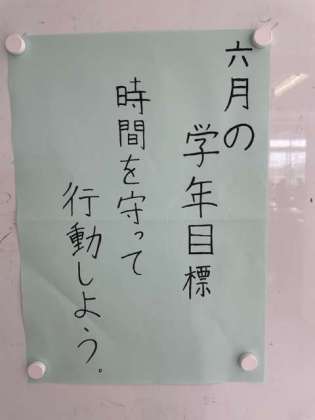 六月の
学年目標
時間を守って
行動しよう。